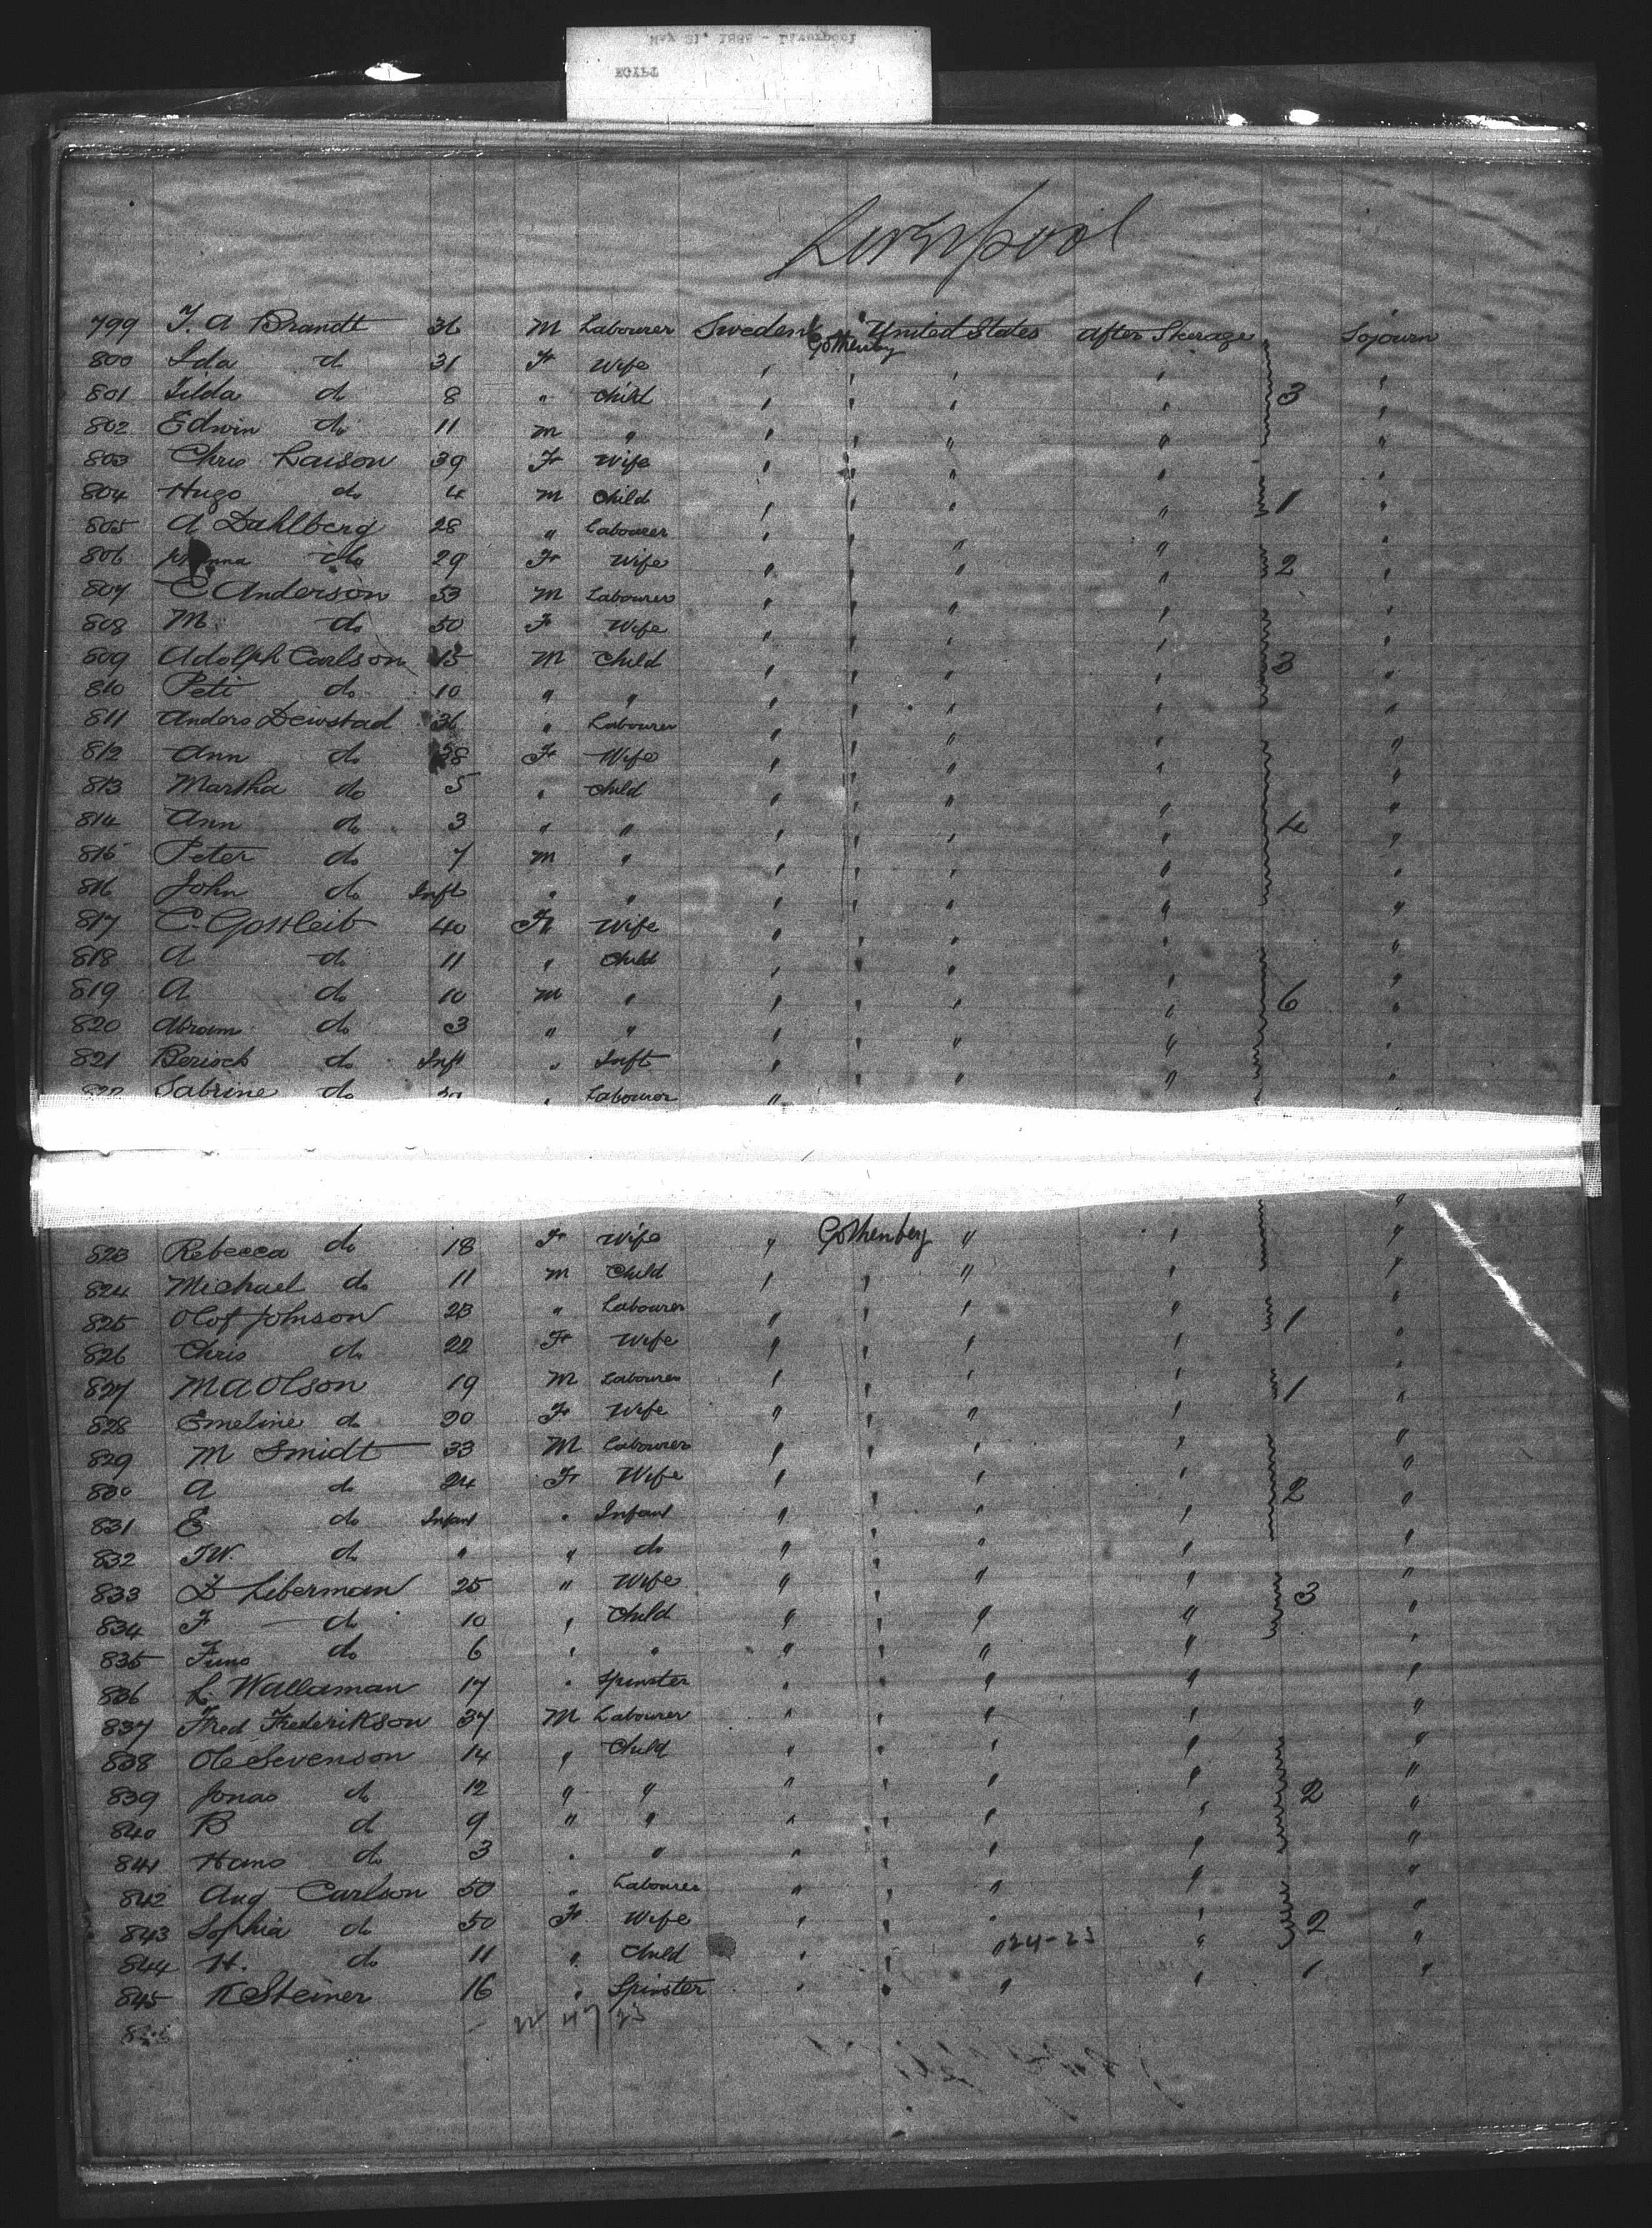 May 21, 1888 - Liverpool
EGYPT
Liverpool
799 J. A Brandt 36 M Labourer Sweden Gothenberg United States After Steerage Sojourn
800 Ida do 31 F Wife " " " " "
801 Tilda do 8 " Child " " " " 3 "
802 Edwin do 11 M " " " " " "
803 Chris Larson 39 F Wife " " " " "
804 Hugo do 4 M Child " " " " 1 "
805 A Dahlberg 28 " Labourer " " " " "
806 do 29 F Wife " " " " 2 "
807 C Anderson 53 M Labourer " " " " "
808 M do 50 F Wife " " " " "
809 Adolph Carlson 15 M Child " " " " 3 "
810 Peti do 10 " " " " " " "
811 Anders 36 " Labourer " " " " "
812 Ann do 38 F Wife " " " " "
813 Martha do 5 " Child " " " " "
814 Ann do 3 " " " " " " 4 "
815 Peter do 7 M " " " " " "
816 John do Inft " " " " " " "
817 C. Gottleib 40 F Wife " " " " "
818 A do 11 " Child " " " " "
819 A do 10 M " " " " " 6 "
820 Abram do 3 " " " " " " "
821 Berisch do Inft " Inft " " " " "
822 Sabrine do " Labourer "
823 Rebecca do 18 F Wife " Gothenberg " " "
824 Michael do 11 M Child " " " " "
825 Olof Johnson 23 " Labourer " " " " 1 "
826 Chris do 22 F Wife " " " " "
827 M A Olson 19 M Labourer " " " " 1 "
828 Emeline do 20 F Wife " " " " "
829 M Smidt 33 M Labourer " " " " "
830 A do 24 F Wife " " " " 2 "
831 E do Infant " Infant " " " " "
832 do " " do " " " " "
833 D Liberman 25 " Wife " " " " 3 "
834 F do 10 " Child " " " " "
835 do 6 " " " " " " "
836 L. Wallaman 17 " Spinster " " " " "
837 Fred Frederikson 37 M Labourer " " " " "
838 Ole Sevenson 14 " Child " " " " "
839 Jonas do 12 " " " " " " 2 "
840 B d 9 " " " " " " "
841 Hans do 3 " " " " " " "
842 Aug Carlson 50 " Labourer " " " " "
843 Sophia do 50 F Wife " " " " 2 "
844 H. do 11 " Child " " " 24-23 " "
845 K Steiner 16 " Spinster " " " " 1 "
47 23